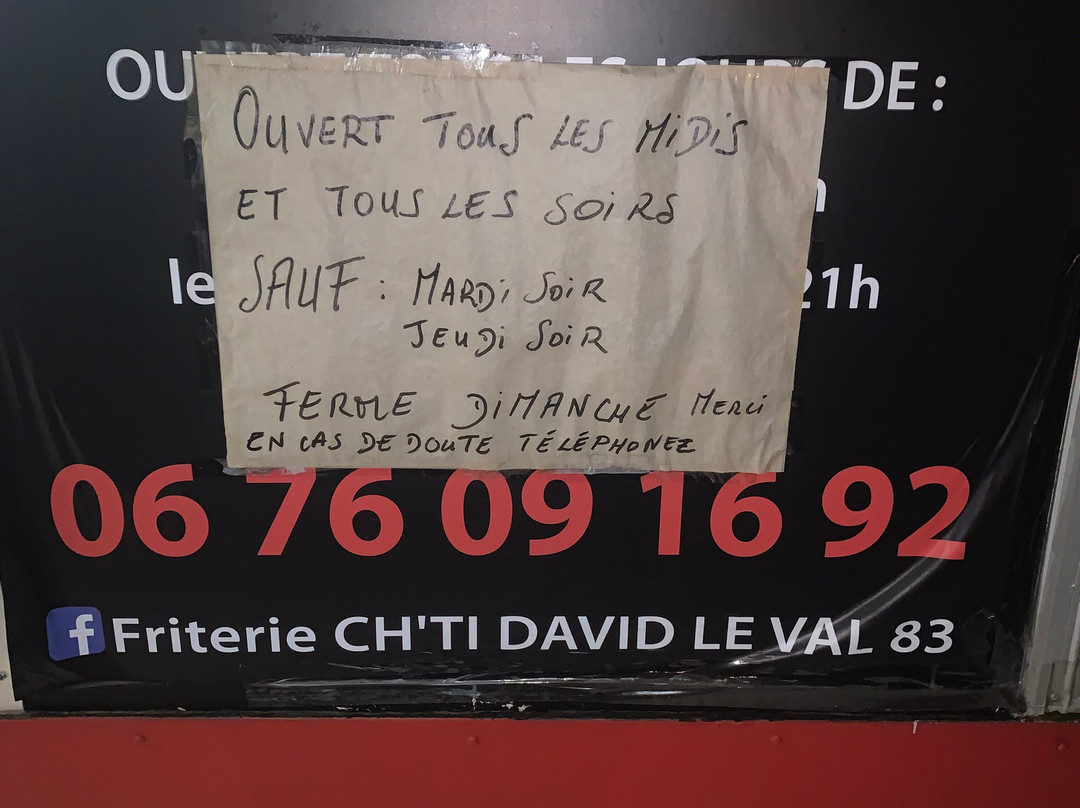 OU DE :
OUVERT TOUS LES MIDIS
ET TOUS LES SOIRS
le 21h
SAUF : MARDI SOIR
JEUDI SOIR
FERME DIMANCHE MERCI
EN CAS DE DOUTE TÉLÉPHONEZ
06 76 09 16 92
f Friterie CH'TI DAVID LE VAL 83